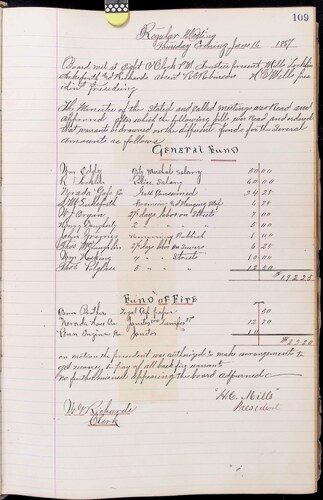 109
Regular Meeting
Thursday Evening Jan 16 1887
Board met at Eight O Clock P.M. Trustees present Mills
and Richards absent Robinson H C Mills presi
dent presiding
The Minutes of the Stated and Called meetings was Read and
Approved after which the following bills was Read and ordered
that warrants be drawn on the different funds for the Several
Amounts as follows
General Fund
Wm Eddy City Marshals Salary 50.00
Police Salary 60.00
Nevada Gas Co Gass Consumed 34 25
Framing and Hanging Map 6 25
Wm Bryan 2½ days labor on Streets 7 00
2 " " " 5 00
John removing Rubbish 1 00
Thos McLaughlin 2½ days labor on Sewers 6 25
Wm 4 " " Streets 10 00
Thos 5 " " " 12 50
$192 25
Fund of Fire
Brown Brothers Legal Cap paper 50
Nevada Hose Co Janitor 12 70
Engine Co Janitor 10 00
$23 20
on motion the president was authorized to make arrangements to
get money to pay of all back fire warrants
No further business appearing the board adjourned
"H.C. Mills"
President
Richards
Clerk